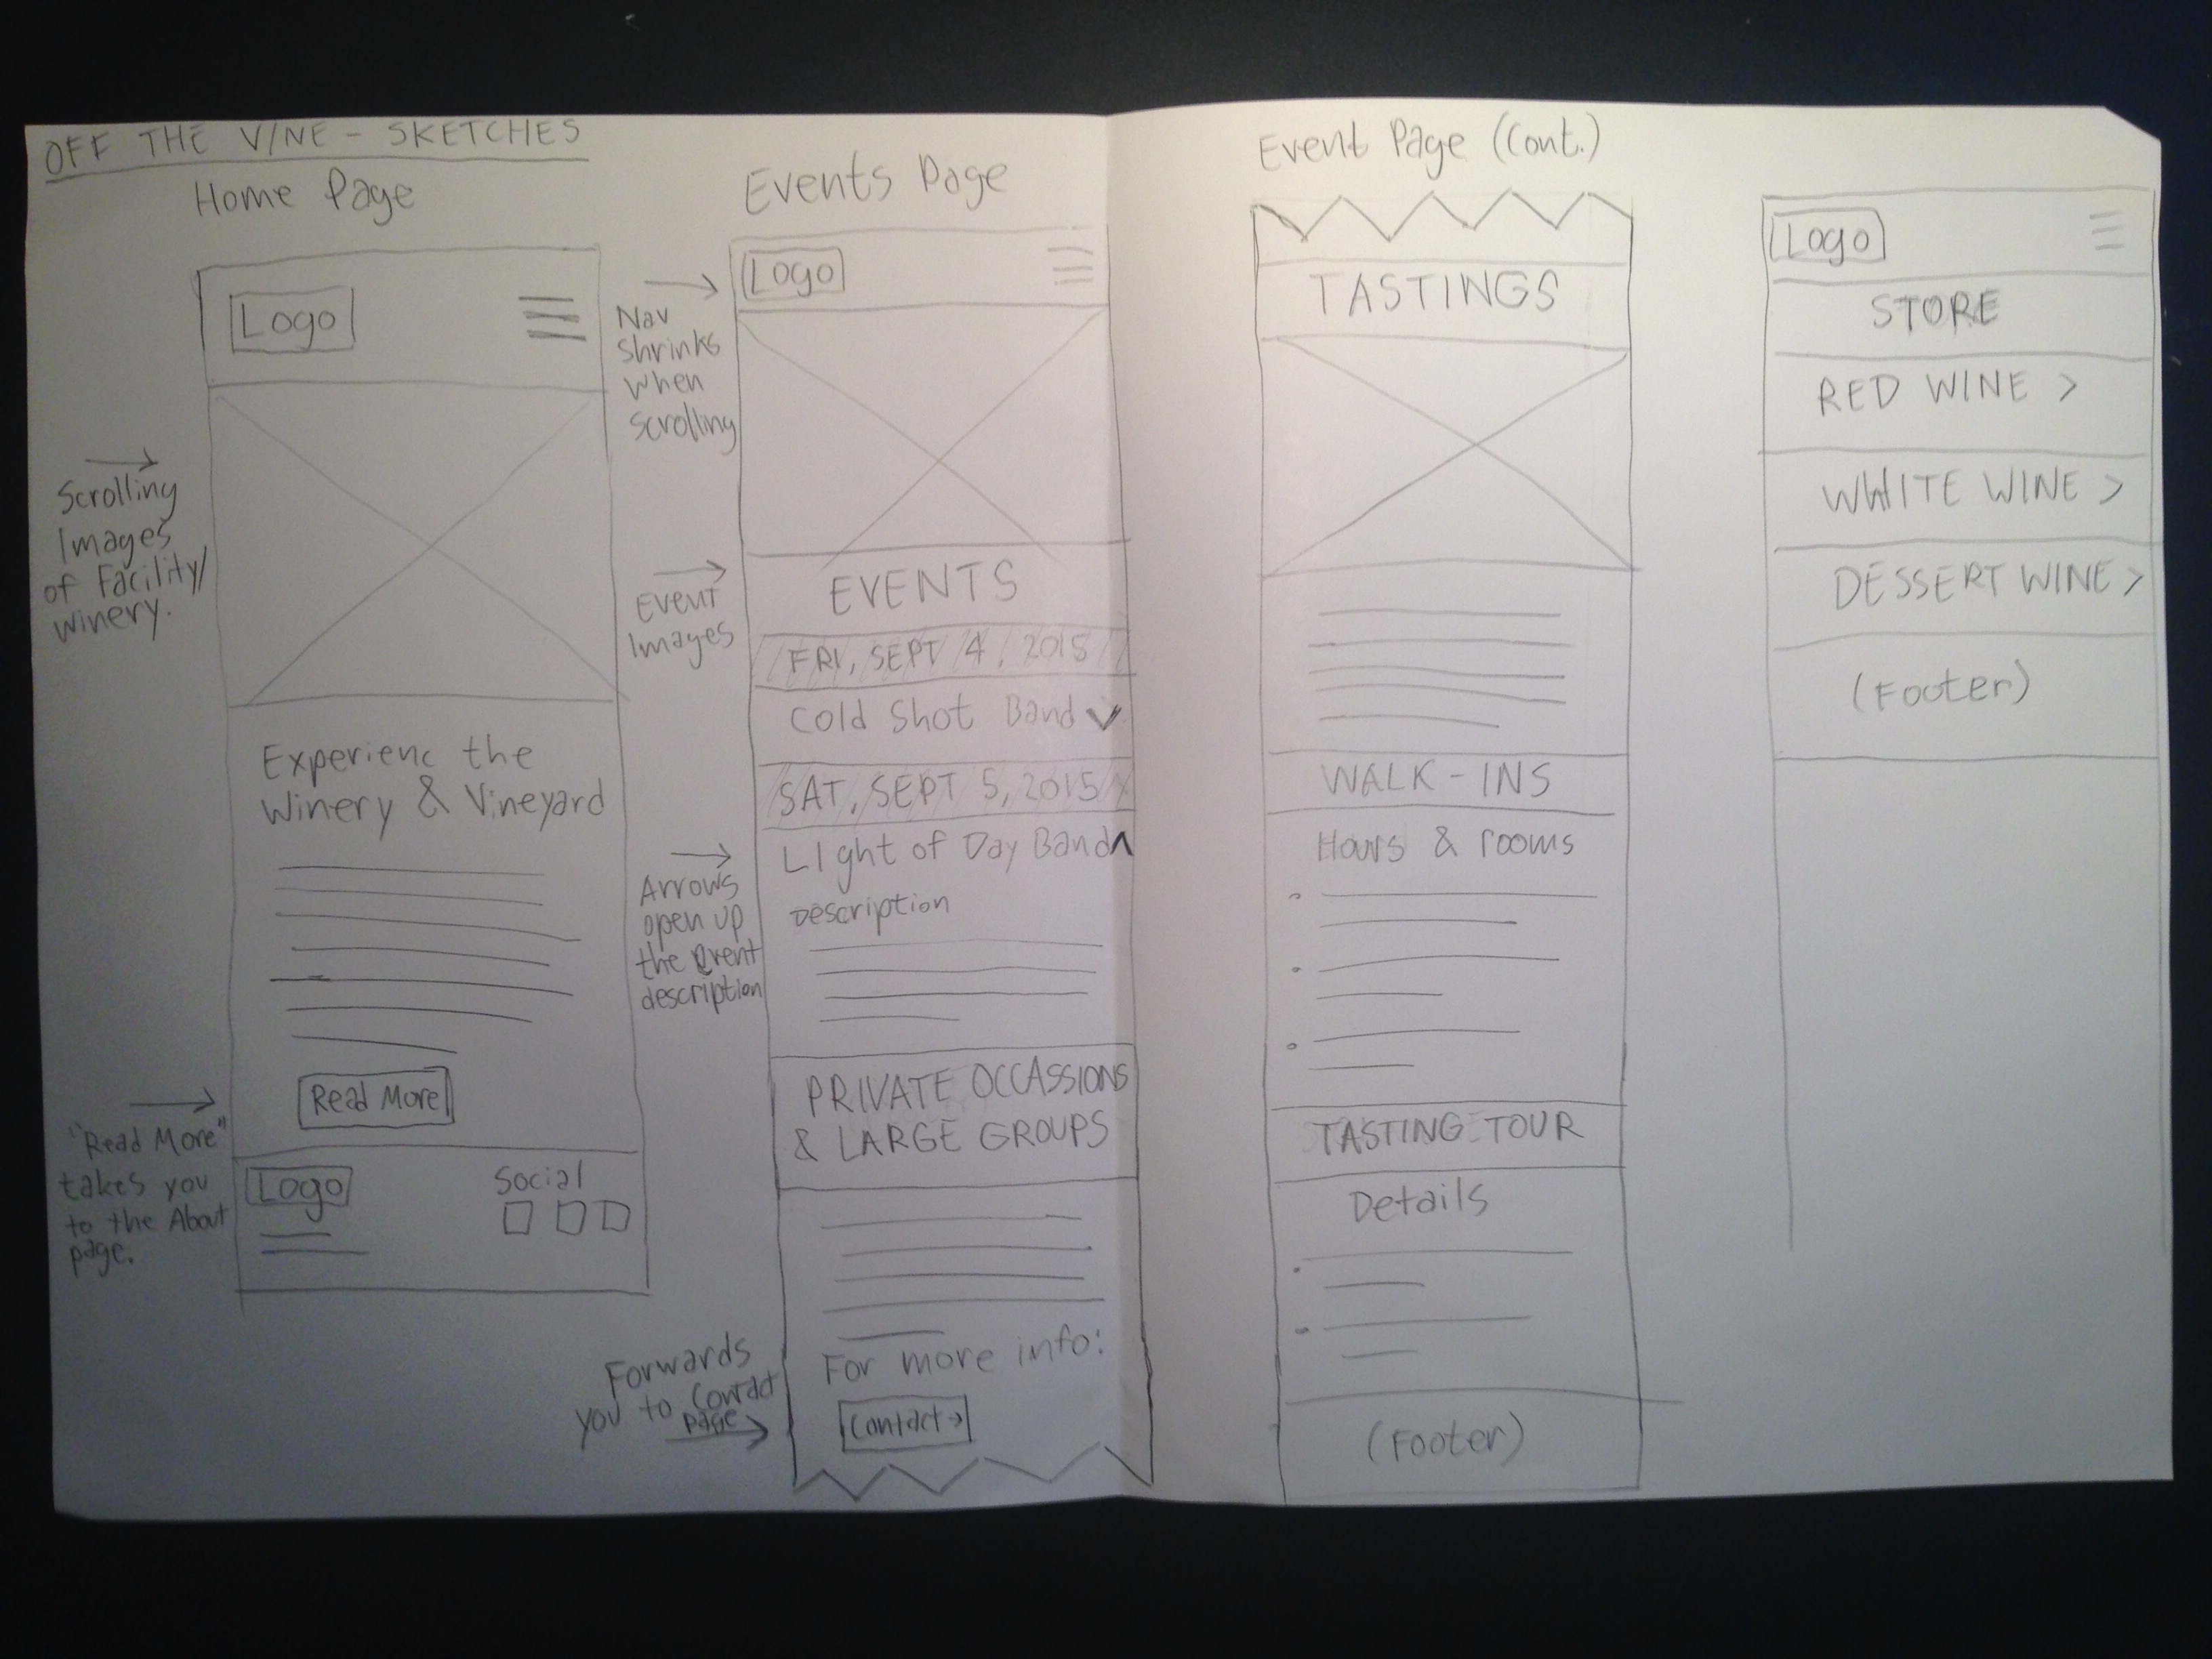 OFF THE VINE - SKETCHES
Home Page
Logo
Scrolling
Images
of Facility/
winery.
Experienc the
Winery & Vineyard
Read More
"Read More"
takes you
to the About
page.
Logo
Social
Events Page
Nav
Shrinks
when
Scrolling
Logo
Event
Images
EVENTS
FRI, SEPT 4, 2015
Cold Shot Band
SAT, SEPT 5, 2015
LIght of Day Band
Arrows
open up
the event
description
Description
PRIVATE OCCASSIONS
& LARGE GROUPS
For more info:
Contact >
Forwards
you to Contact
page
Event Page (Cont.)
TASTINGS
WALK-INS
Hours & rooms
TASTING TOUR
Details
(Footer)
Logo
STORE
RED WINE >
WHITE WINE >
DESSERT WINE >
(Footer)